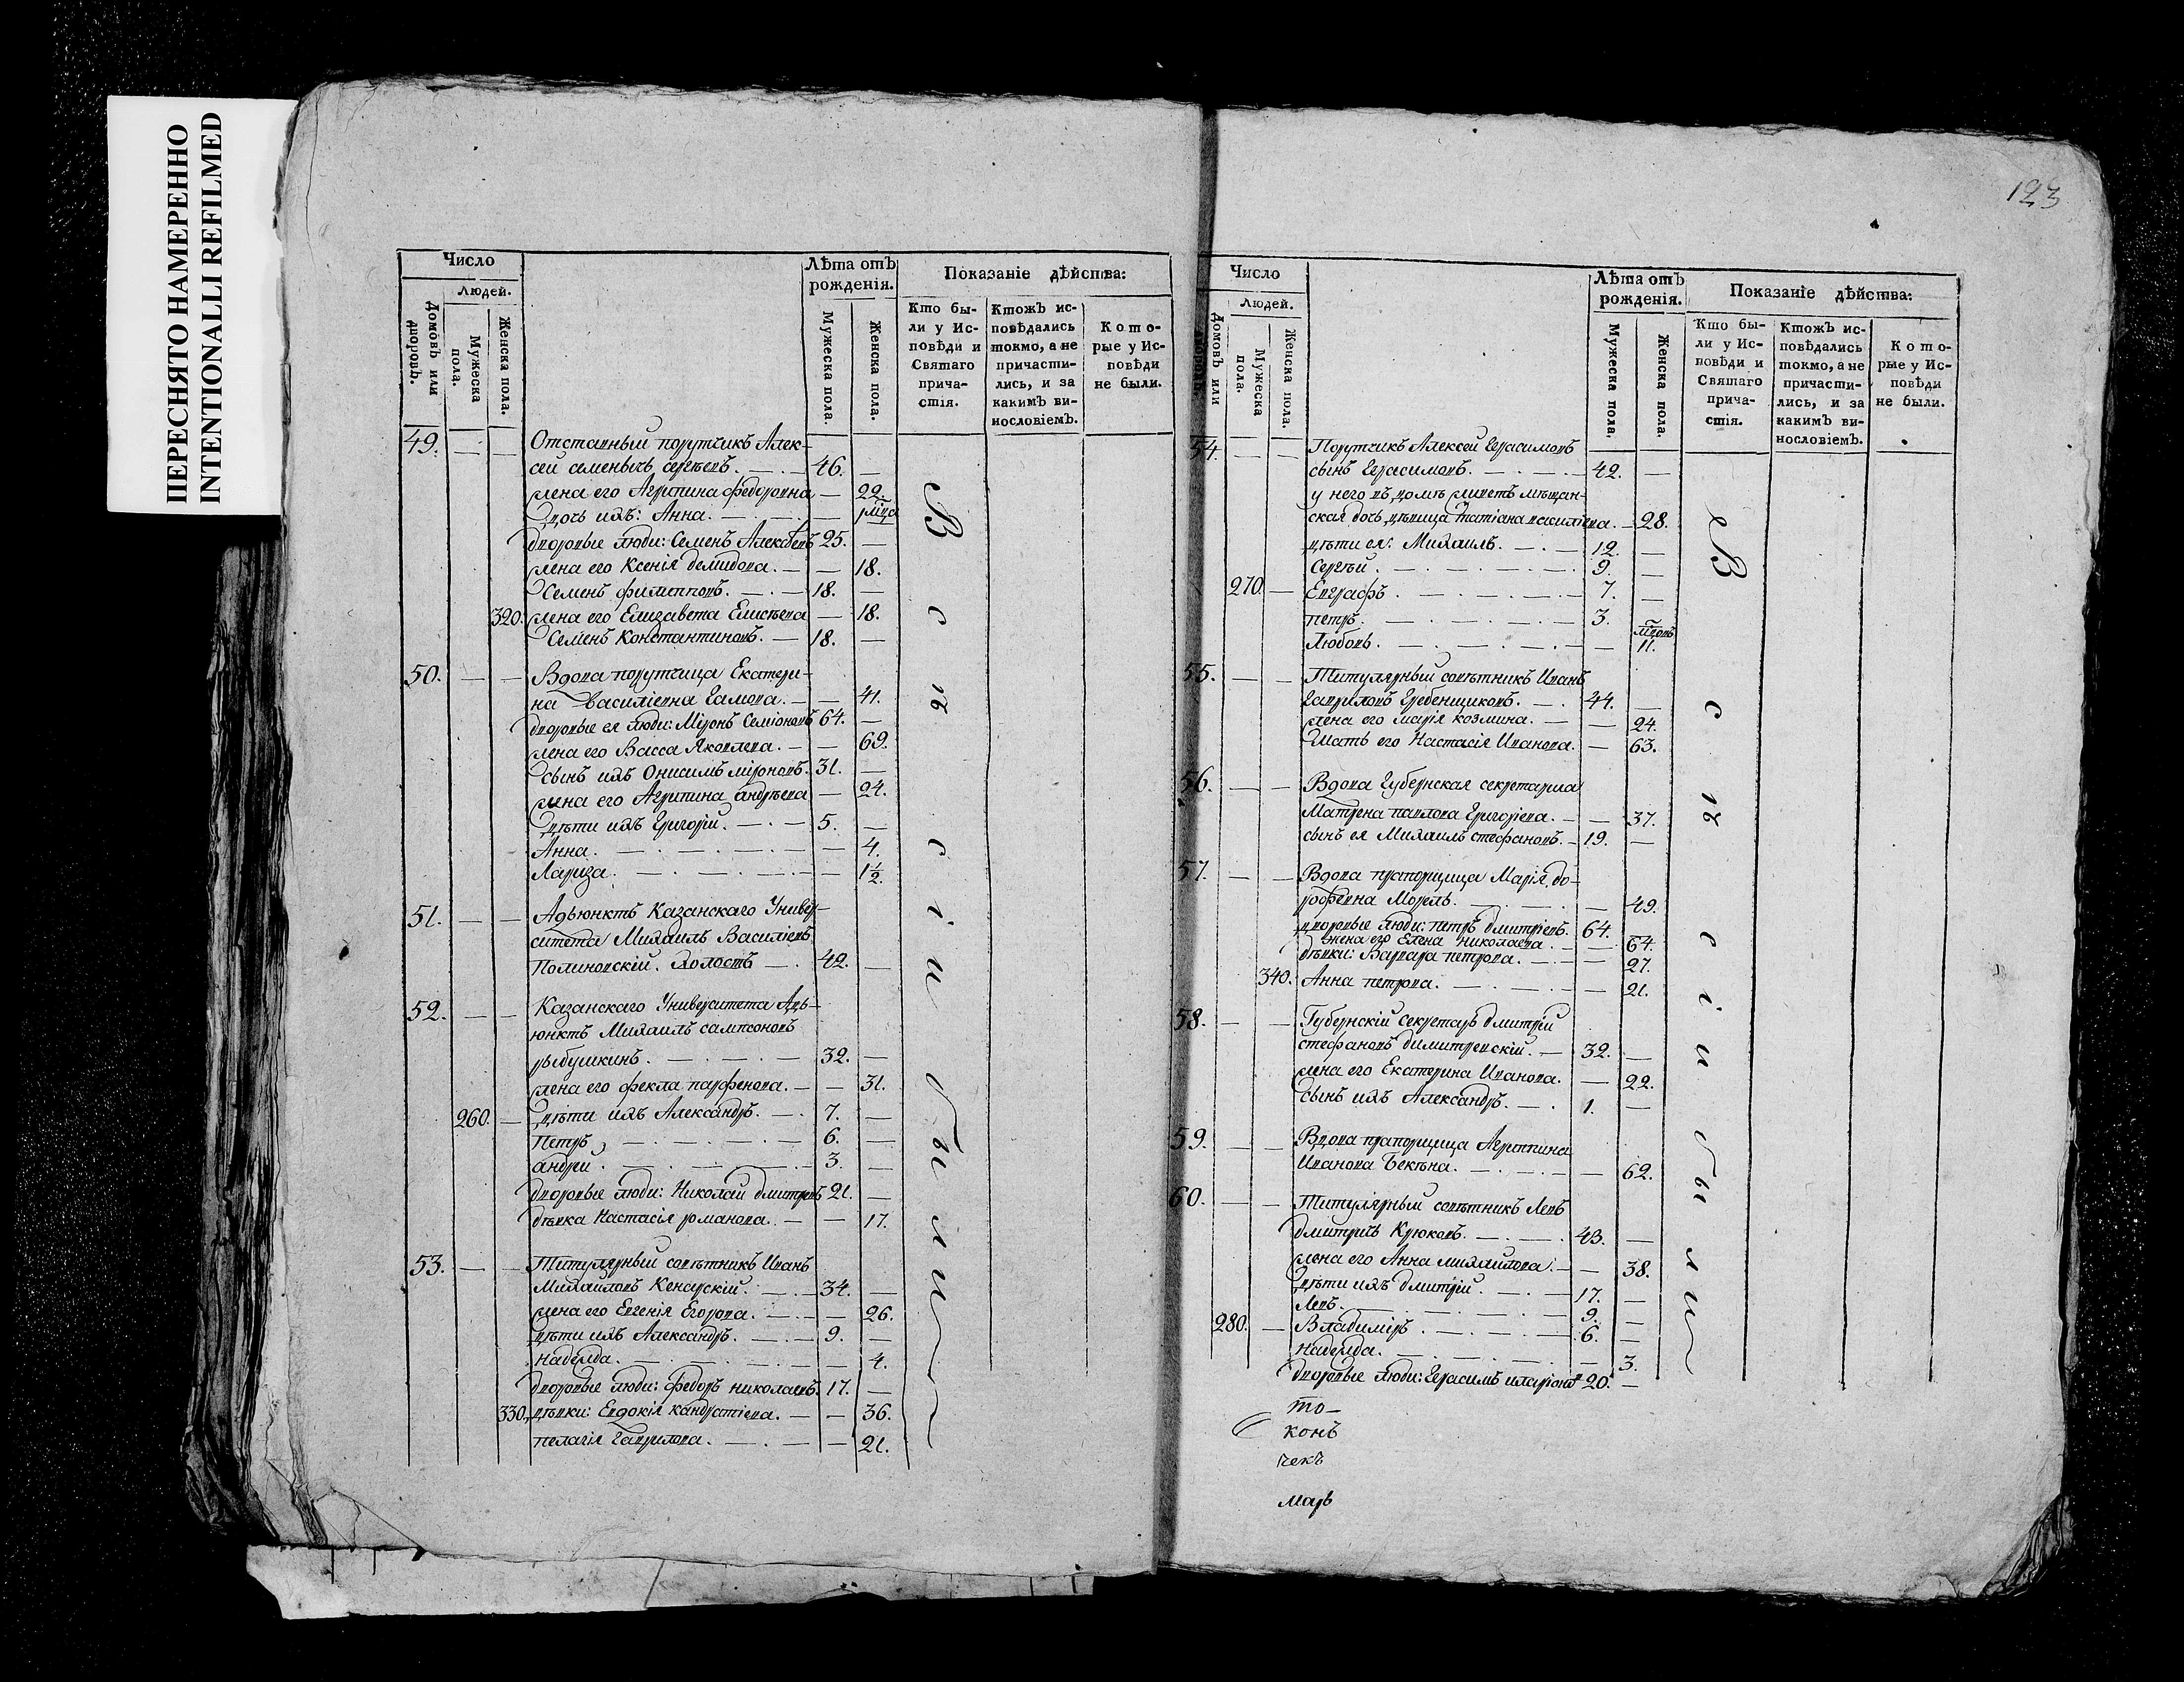 ПЕРЕСНЯТО НАМЕРЕННО
INTENTIONALLI REFILMED
Число
Людей.
Домовъ или дворовъ.
Мужеска пола.
Женска пола.
Лѣта отъ рожденія.
Мужеска пола.
Женска пола.
Показаніе дѣйства:
Кто были у Исповѣди и Святаго причастія.
Ктожъ исповѣдались токмо, а не причастились, и за какимъ винословіемъ.
Которые у Исповѣди не были.
49. — — Отставный порутчикъ Алек-
сей семенычь сергѣевъ. — 46. —
жена его Агрипина федоровна — 22.
дочь ихъ: Анна. —
дворовые люди: Семенъ Алексѣевъ 25. —
жена его Ксенія демидова. — — 18.
Семенъ филипповъ. — 18. —
320. жена его Елизавета Елисѣева — 18.
Семенъ Константиновъ. — 18. —
50. — — Вдова порутчица Екатери-
на Василіевна Гамова. — — 41.
дворовые ея люди: Міронъ Семіоновъ 64. —
жена его Васса Яковлева. — — 69.
сынъ ихъ Онисимъ міроновъ. 31. —
жена его Агрипина андрѣева — 24.
дѣти ихъ Григорій. — 5. —
Анна. — — 4.
Лариза. — — 1 1/2.
51. — — Адьюнктъ Казанскаго Универ-
ситета Михаилъ Василіевъ
Полиновскій. холостъ — 42. —
52. — — Казанскаго Университета Адь-
юнктъ Михаилъ сампсоновъ
рыбушкинъ. — 32. —
жена его фекла парфенова. — — 31.
260. — дѣти ихъ Александръ. — 7. —
Петръ — 6. —
андрей. — 3. —
дворовые люди: Николай дмитревъ 21. —
дѣвка Настасія романова. — — 17.
53. — — Титулярный совѣтникъ Иванъ
Михайловъ Кенарскій. — 34. —
жена его Евгенія Егорова. — — 26.
дѣти ихъ Александръ. — 9. —
Надежда. — — 4.
дворовые люди: федоръ николаевъ. 17. —
330. дѣвки: Евдокія кандратіева. — — 36.
пелагія Гаврилова. — — 21.
Всѣ сіи были
123
Число
Людей.
Домовъ или
Мужеска пола.
Женска пола.
Лѣта отъ рожденія.
Мужеска пола.
Женска пола.
Показаніе дѣйства:
Кто были у Исповѣди и Святаго причастія.
Ктожъ исповѣдались токмо, а не причастились, и за какимъ винословіемъ.
Которые у Исповѣди не были.
54. — — Порутчикъ Алексей Герасимовъ
сынъ Герасимовъ. — 42. —
у него въ домѣ живетъ мѣщан-
ская дочь дѣвица Татіана василіева. — 28.
дѣти ея: Михаилъ. — 12. —
Сергѣй. — 9. —
270. — Евграфъ. — 7. —
петръ. — 3. —
Любовь. — — 11.
55. — — Титулярный совѣтникъ Иванъ
Гавриловъ Гребенщиковъ. — 44. —
жена его марія козмина. — — 24.
Мать его Настасія Иванова. — 63.
56. — — Вдова Губернская секретарша
Матрена павлова Григоріева. — — 37.
сынъ ея Михаилъ стефановъ. — 19. —
57. — — Вдова прапорщица Марія до-
рофевна Морель. — — 49.
дворовые люди: петръ дмитріевъ. 64. —
жена его Елена николаева. — — 64.
дѣвки: Варвара петрова. — — 27.
340. Анна петрова. — — 21.
58. — — Губернскій Секретарь дмитрій
стефановъ димитревскій. — 32. —
жена его Екатерина Иванова. — 22.
сынъ ихъ Александръ. — 1. —
59. — — Вдова прапорщица Агриппина
Иванова Бекѣна. — — 62.
60. — — Титулярный совѣтникъ Левъ
дмитричь Крюковъ. — 43. —
жена его Анна михайлова. — — 38.
дѣти ихъ дмитрій. — 17. —
Левъ. — 9. —
280. — Владиміръ. — 6. —
Надежда. — — 3.
дворовые люди: Герасимъ иларіоновъ 20. —
Всѣ сіи были
то-
конъ
чекъ
марь